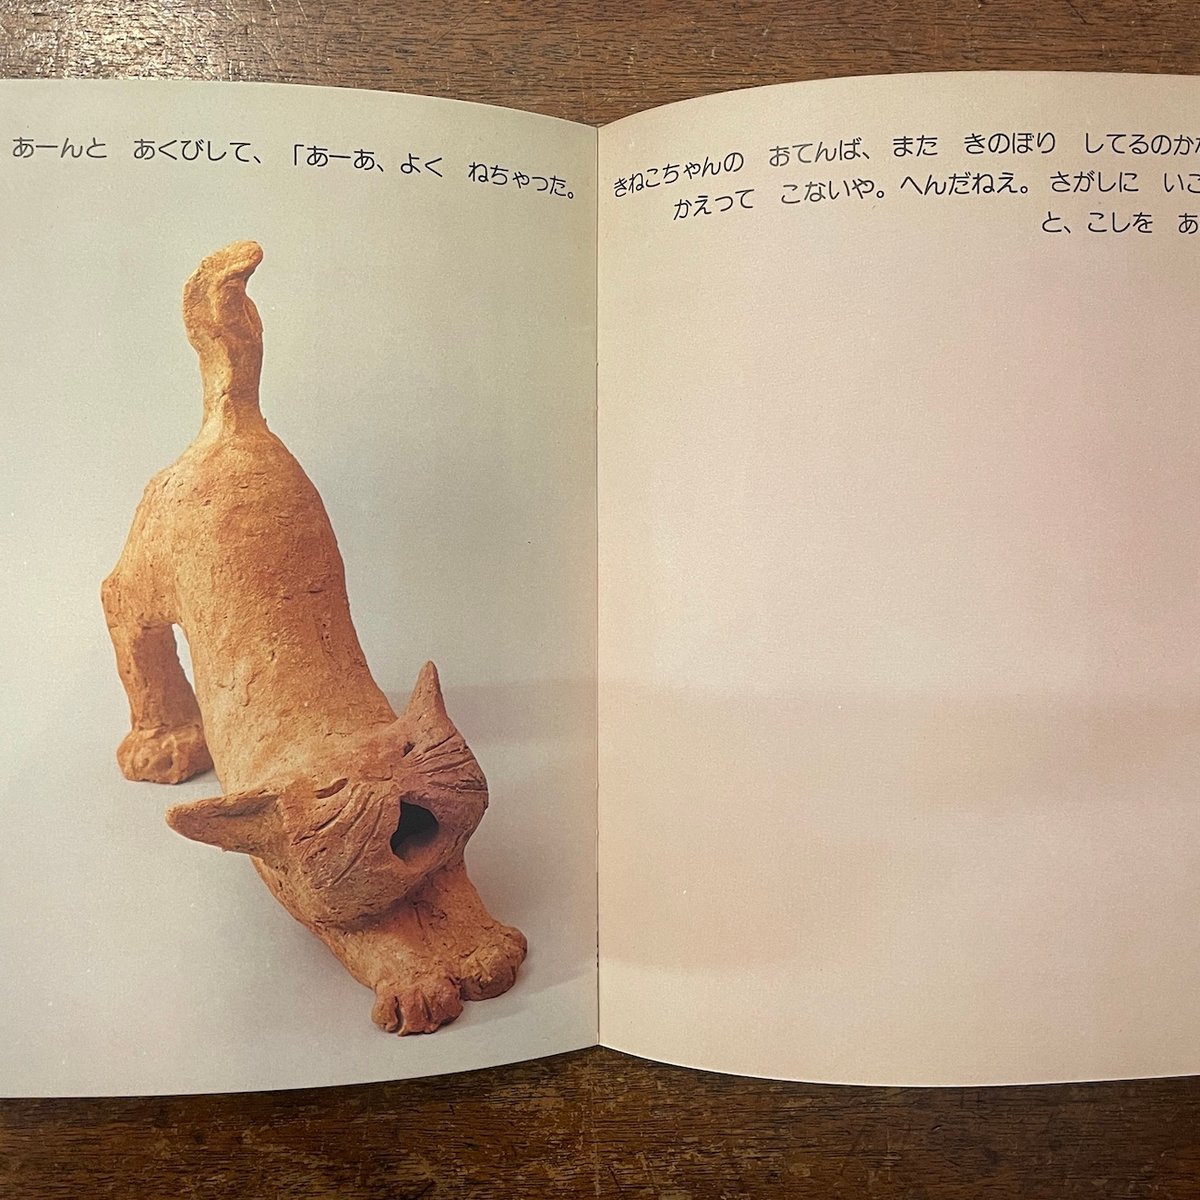 あーんと　あくびして、「あーあ、よく　ねちゃった。
きねこちゃんの　おてんば、また　きのぼり　してるのかな
かえって　こないや。へんだねえ。さがしに　いこ
と、こしを　あ